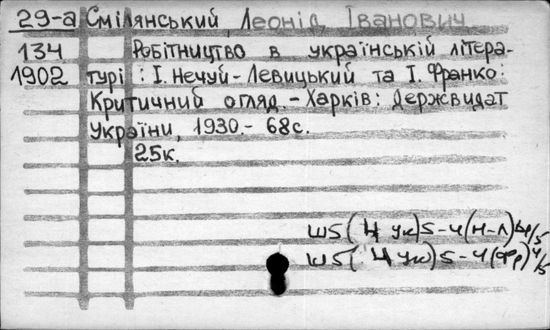 29-а Смілянський, Леонід Іванович
134 Робітництво в українській літера-
1902 турі : І. Нечуй-Левицький та І. Франко:
Критичний огляд. - Харків: Держвидат
України, 1930 - 68с.
25к.
Ш5(4 Ук)5-4(Н-Л)
Ш5(4 Ук)5-4(Фр)